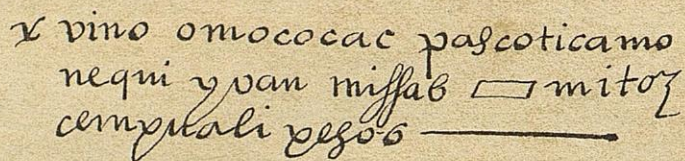 x vino omococac pascoticamo
nequi yvan missas mitoz
cempuali pesos